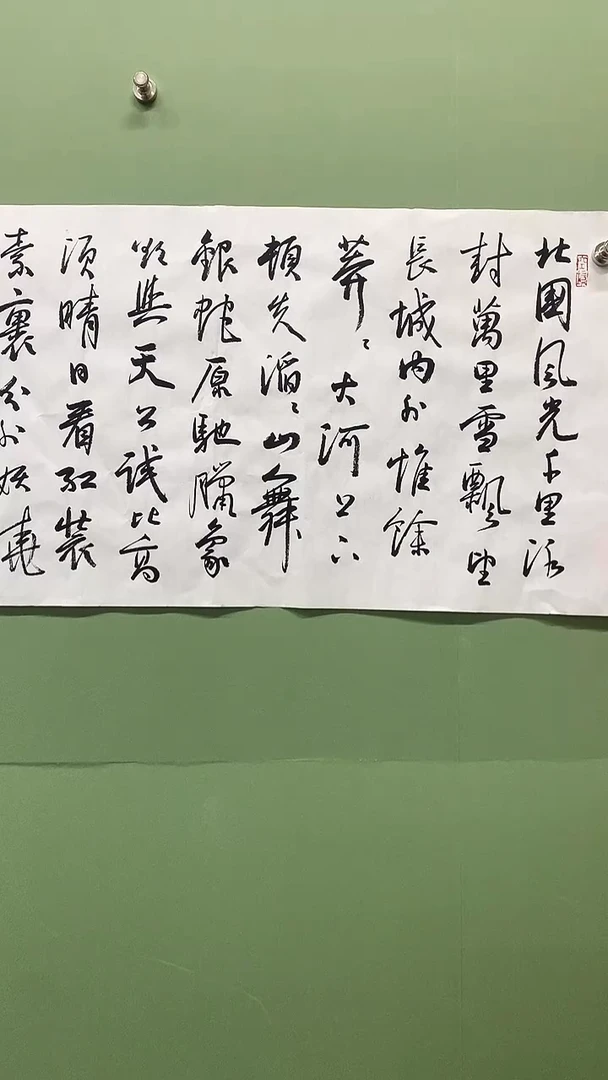 北國風光千里冰
封萬里雪飄望
長城内外惟餘
莽〻大河上下
頓失滔〻山舞
銀蛇原馳臘象
欲與天公試比高
須晴日看紅裝
素裹分外妖嬈